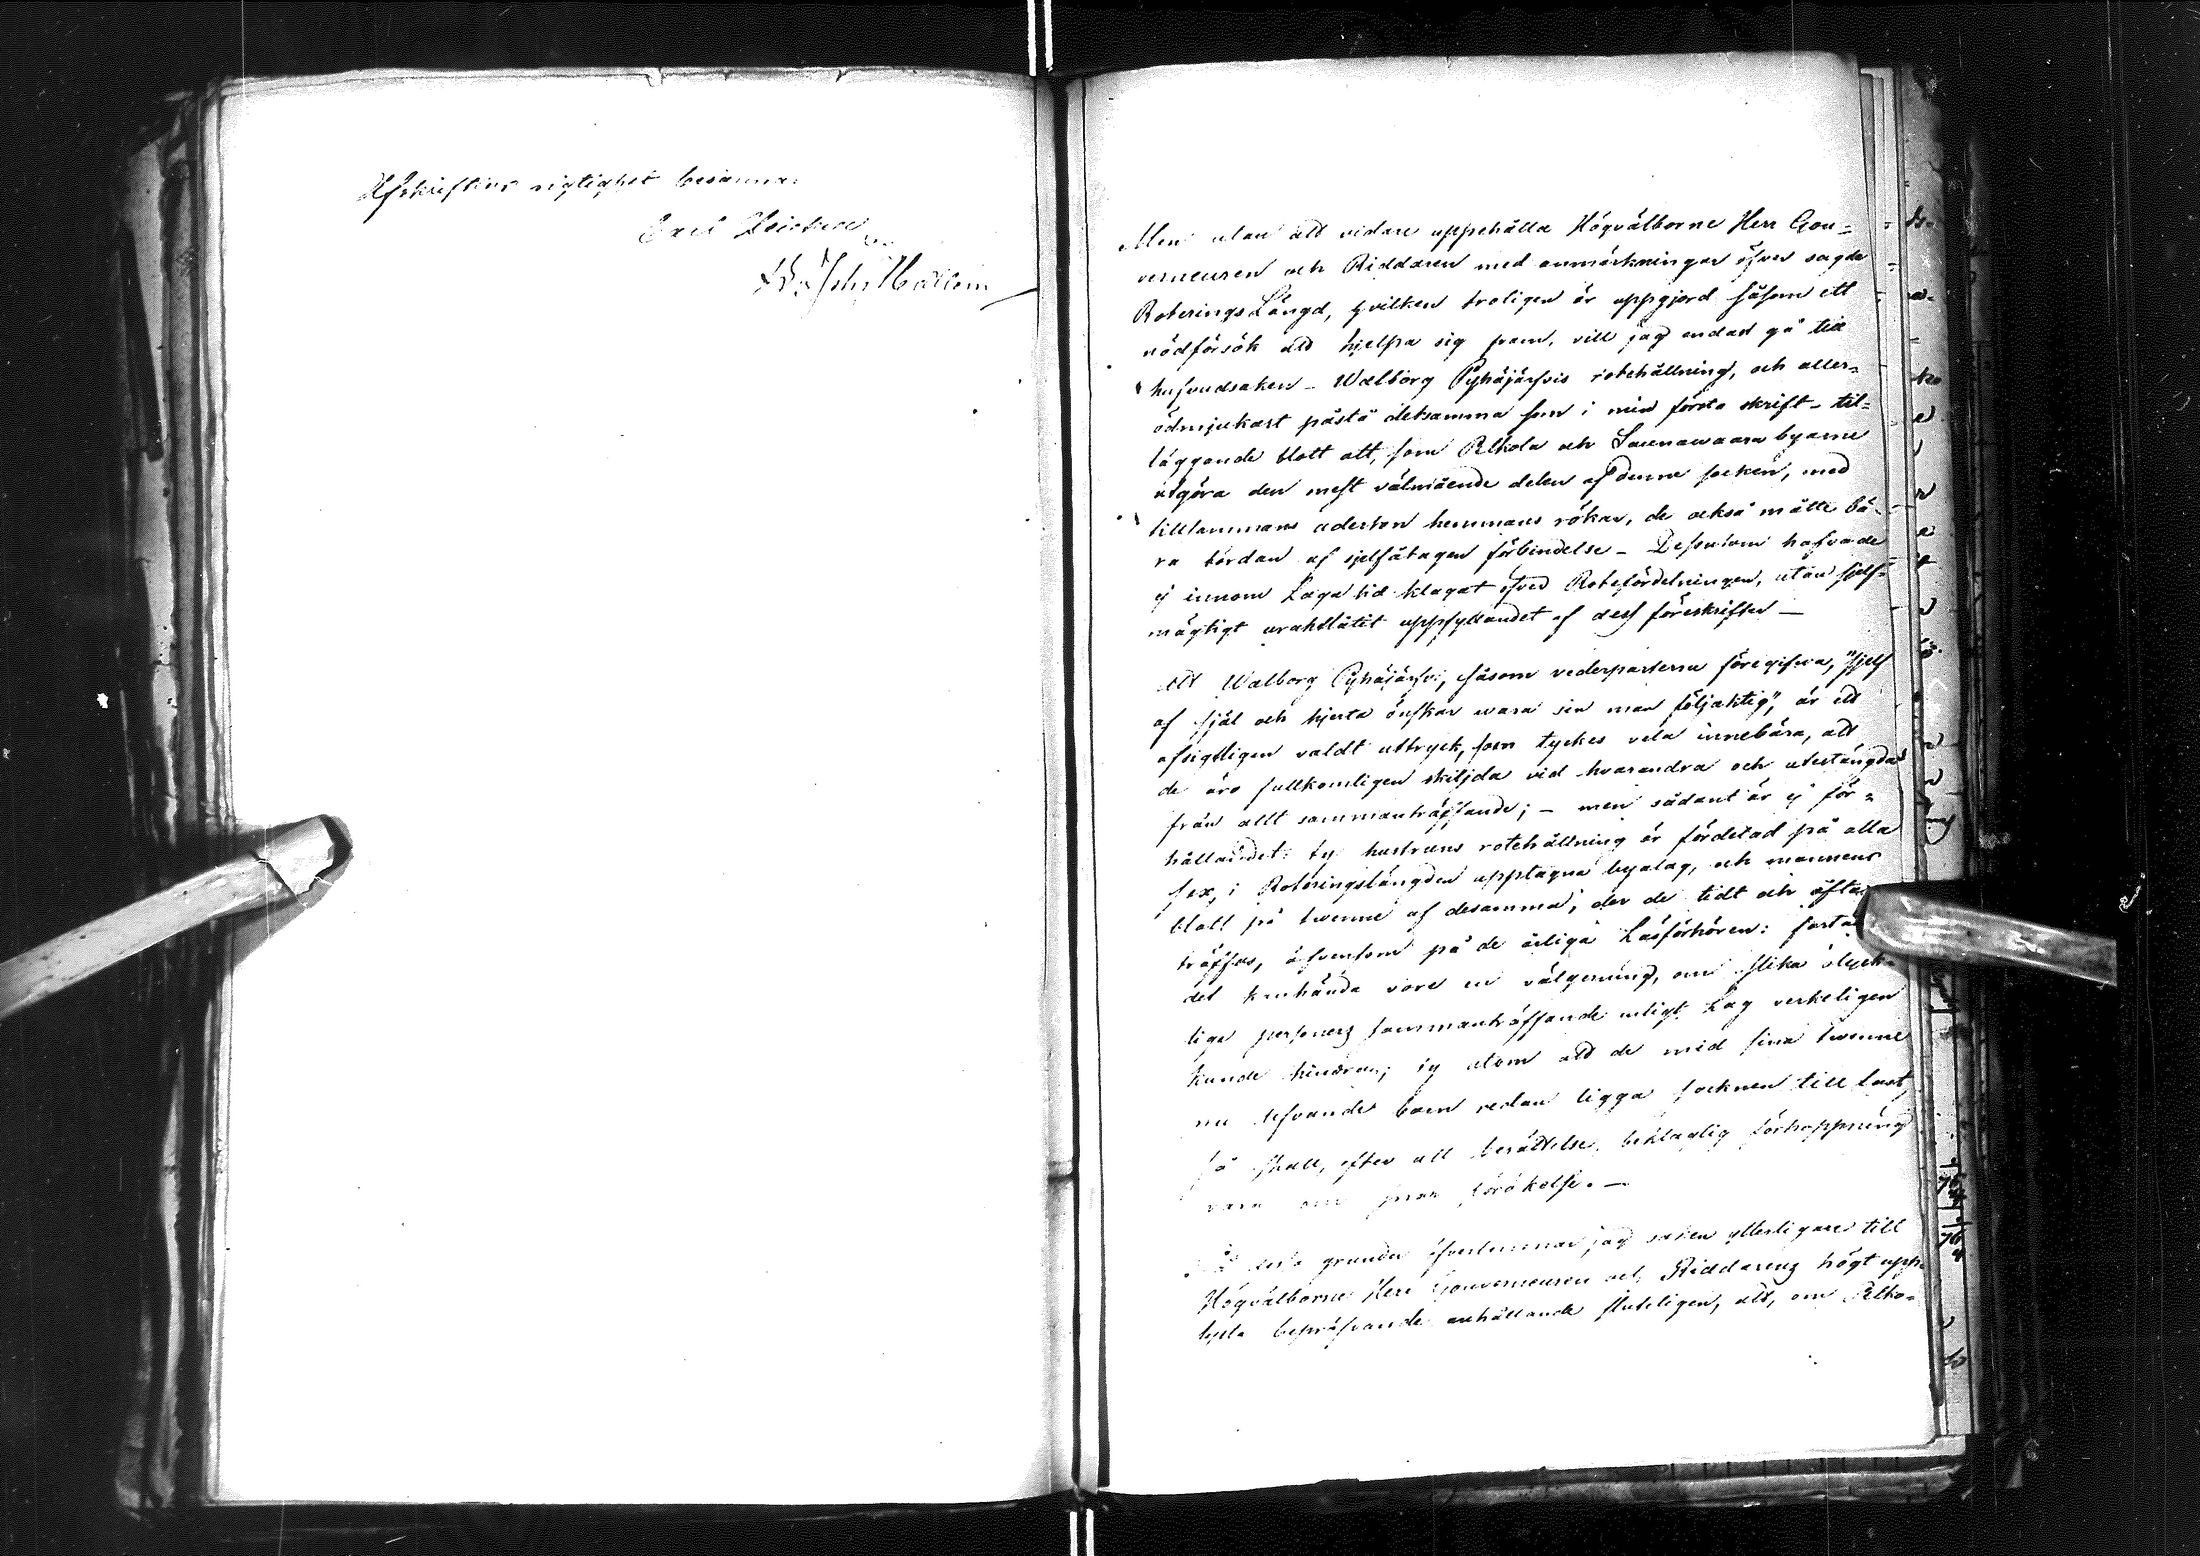 Afskriftens rigtighet besannar
Men utan att vidare uppehålla Högvälborne Herr Gou=
verneuren och Riddaren med anmärkningar öfver sagde
Roterings Längd, hvilken troligen är uppgjord såsom ett
nödförsök att hjelpa sig fram, vill jag endast gå till
hufvudsaken – Walborg Pyhäjärfvis rotehållning, och aller=
ödmjukast påstå detsamma som i min första skrift – til=
läggande blott att, som Pelkola och Saunawaara byarne
utgöra den mest välmående delen af denne socken, med
tillsammans aderton hemmans rökar, de också måtte bä=
ra bördan af sjelfåtagen förbindelse – Dessutom hafva de
ej innom Laga tid klagat öfver Rotefördelningen, utan sjelf=
mägtigt uraktlåtit uppfyllandet af dess föreskrifter —
Att Walborg Pyhäjärfvi, såsom vederparterna föregifva, "sjelf
af själ och hjerta önskar wara sin man följaktig", är ett
afsigtligen valdt uttryck, som tyckes vela innebära, att
de äro fullkomligen skiljda vid hvarandra och utestängda
från allt sammanträffande; – men sådant är ej för=
hållandet: ty hustruns rotehållning är fördelad på alla
sex, i Roteringslängden upptagna byalag, och mannens
blott på twenne af desamma, der de tidt och ofta
träffas, äfvensom på de årliga Läsförhören:
det kanhända vore en välgerning, om slika olyck=
liga personers sammanträffande enligt Lag verkeligen
kunde hindras; ty utom att de med sina twenne
nu lefvande barn redan ligga socknen till last,
så skall, efter all berättelse, beklaglig förhoppning
vara om snar förökelse. —
På desse grunder öfverlemnar jag saken ytterligare till
Högvälborne Herr Gouverneuren och Riddarens högt upp=
lysta bepröfvande anhållande sluteligen, att, om Pelko=